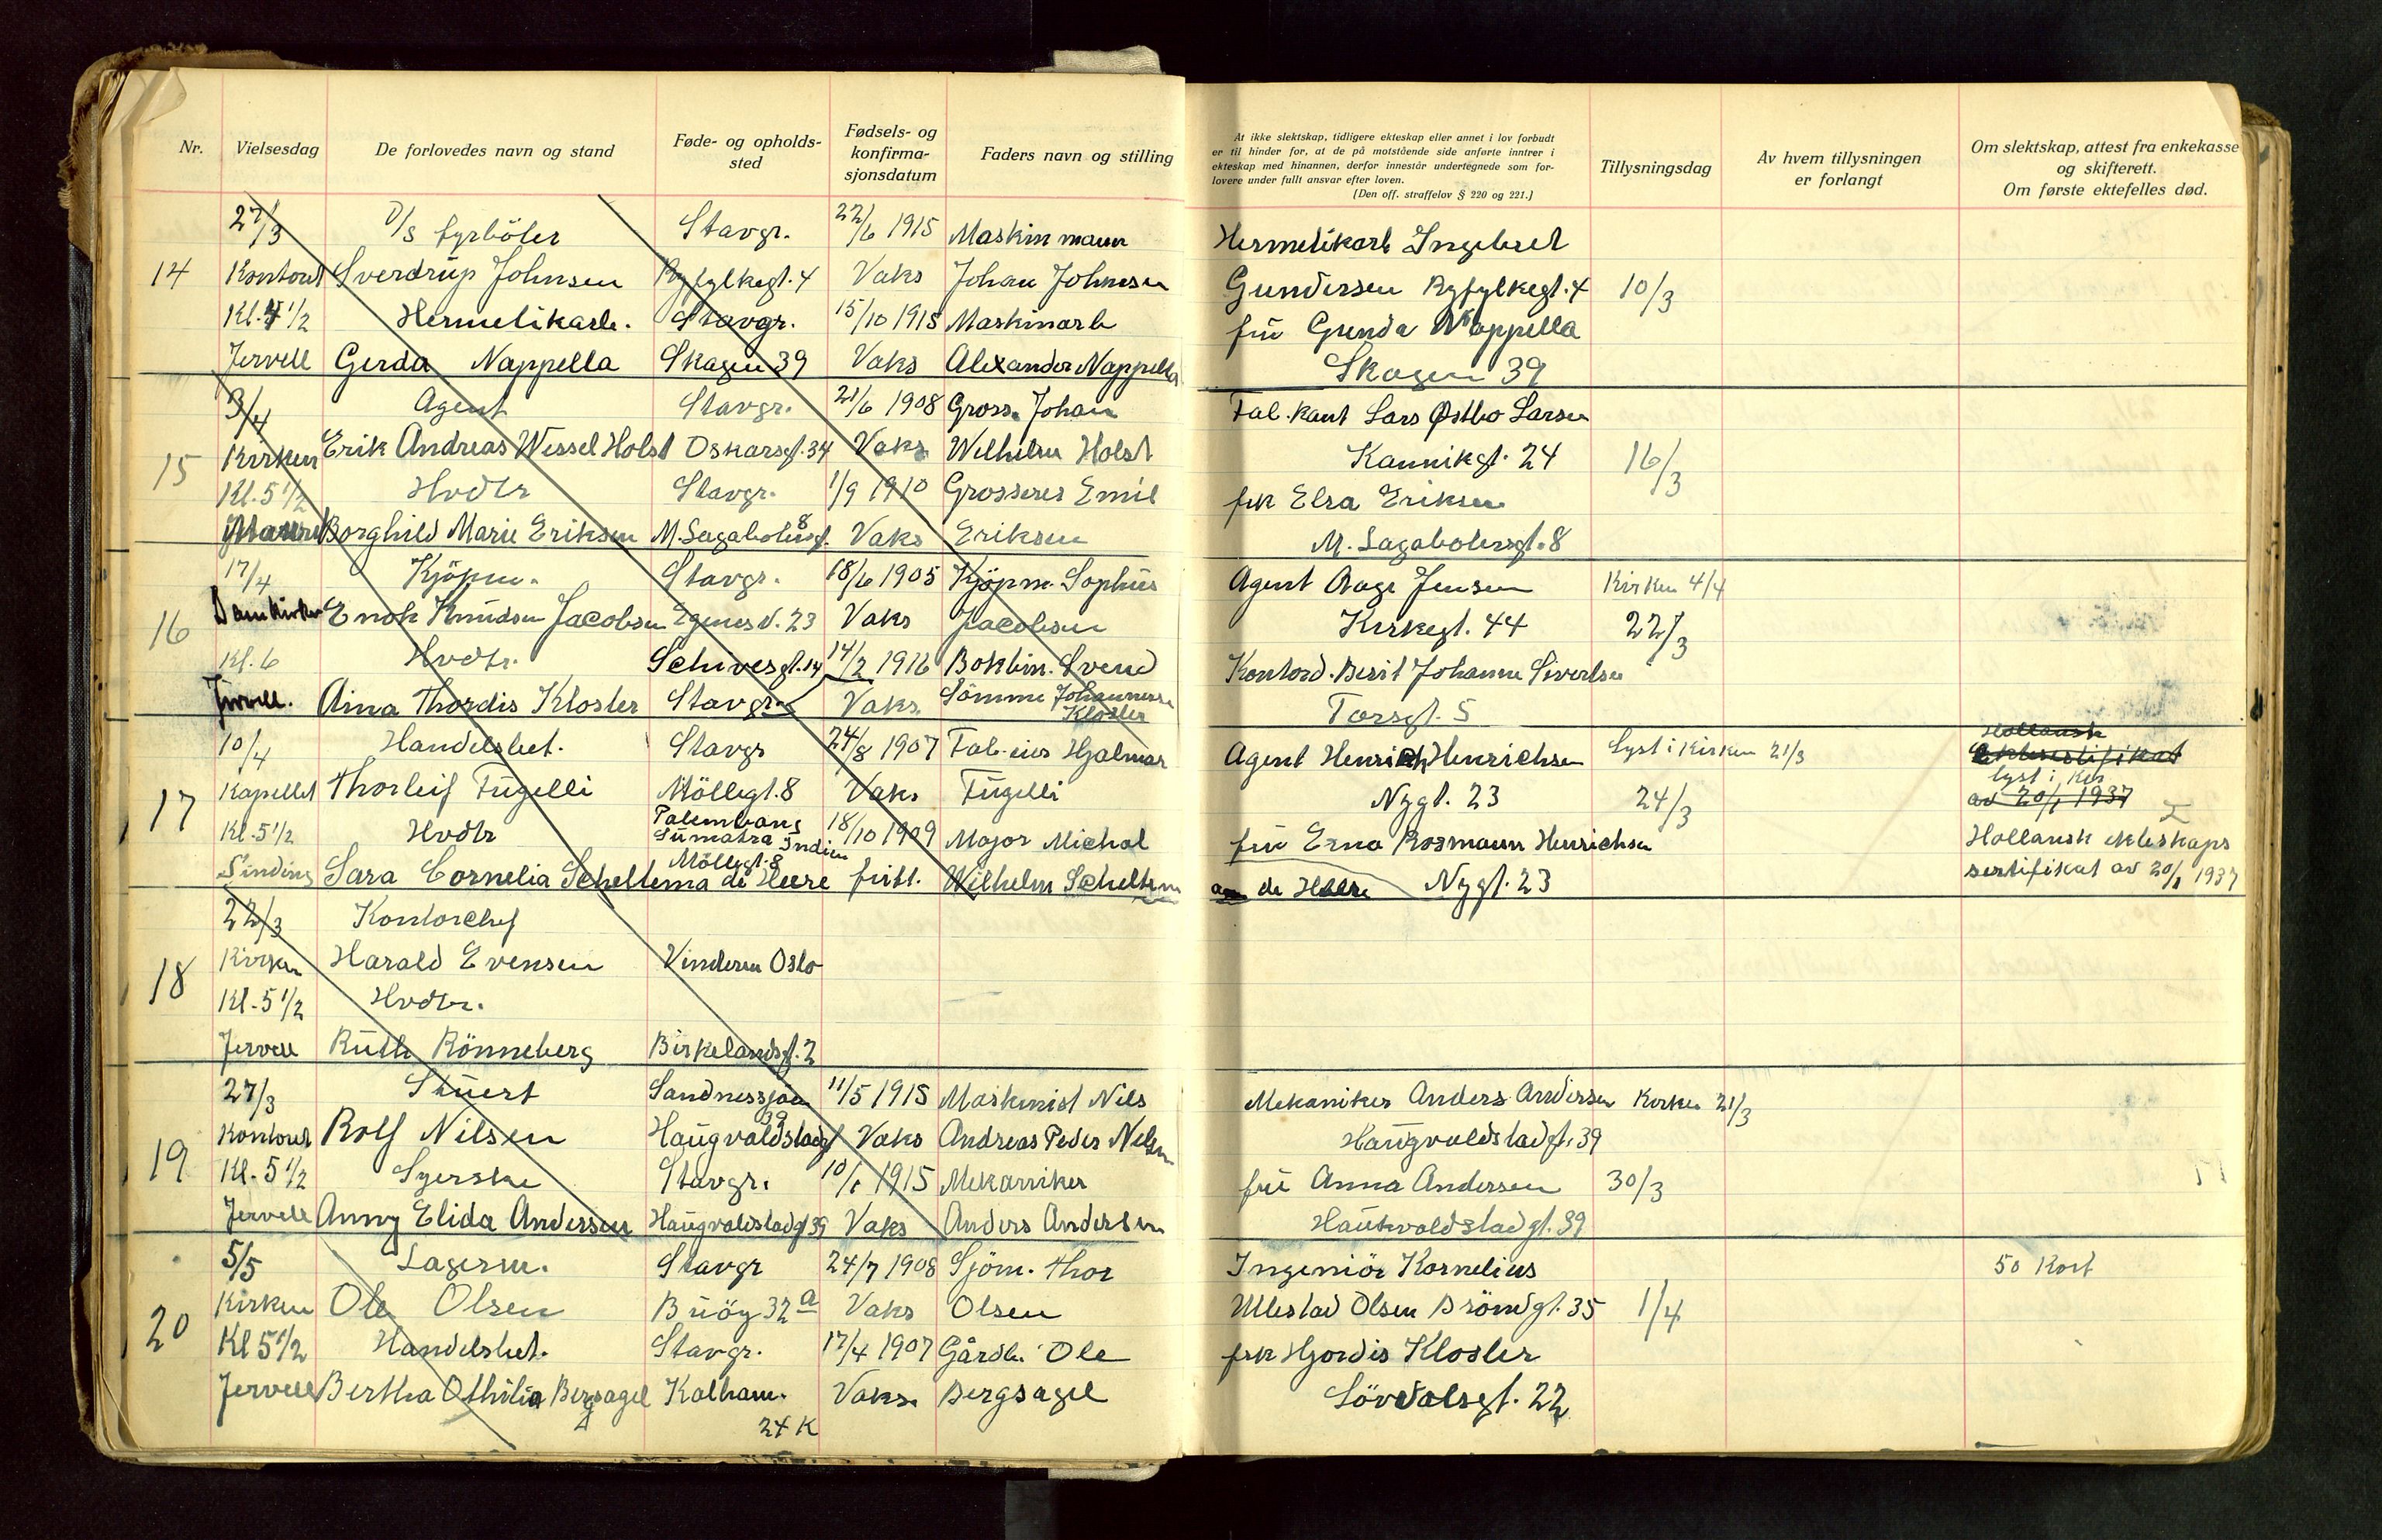 Nr. Vielsesdag De forlovedes navn og stand Føde- og opholds-sted Fødsels- og konfirma-sjonsdatum Faders navn og stilling
At ikke slektskap, tidligere ekteskap eller annet i lov forbudt
er til hinder for, at de på motstående side anførte inntrer i
ekteskap med hinannen, derfor innestår undertegnede som for-
lovere under fullt ansvar efter loven.
(Den off. straffelov § 220 og 221.)
Tillysningsdag
Av hvem tillysningen
er forlangt
Om slektskap, attest fra enkekasse
og skifterett.
Om første ektefelles død.
27/3 D/S fyrböter Stavgr. 22/6 1915 Maskinmann
14 Kontoret Sverdrup Johnsen Ryfylkegt. 4 Vaks Johan Johnsen
Kl. 4 1/2 Hermetikarb. Stavgr. 15/10 1915 Maskinarb
Jervell Gerda Nappella Skagen 39 Vaks Alexander Nappella
Hermetikarb Ingebret
Gundersen Ryfylkegt. 4 10/3
frü Gunda Nappella
Skagen 39
3/4 Agent Stavgr. 21/6 1908 Gross. Johan
15 Kirken Erik Andreas Wessel Holst Oskarsgt. 34 Vaks Wilhelm Holst
Kl. 5 1/2 Hvdtr Stavgr. 1/9 1910 Grosserer Emil
Borghild Marie Eriksen M. Lagabøtersgt. 8 Vaks Eriksen
Fab.kant Lars Østbo Larsen
Kannikgt. 24 16/3
frk Elsa Eriksen
M. Lagabotersgt. 8
17/4 Kjöpm. Stavgr. 18/6 1905 Kjöpm. Sophüs
16 Domkirken Enok Knüdsen Jacobsen Egenes v. 23 Vaks Jacobsen
Kl. 6 Hvdtr. Schivesgt. 14 14/2 1916 Bokbin. Svend
Jervell. Aina Thordis Kloster Stavgr. Vaks Sömme Johannessen Kloster
Agent Aage Jensen Kirken 4/4
Kirkegt. 44 22/3
Kontord. Berit Johanne Sivertsen
Torsgt. 5
10/4 Handelsbet. Stavgr 24/8 1907 Fab-eier Hjalmar
17 Kapellet Thorleif Fügelli Möllegt. 8 Vaks Fügelli
Kl. 5 1/2 Hvdtr Palembang Sümatra Indien Möllegt. 8 18/10 1909 Major Michal
Sinding Sara Cornelia Scheltema de Heere fritt. Wilhelm Scheltema
Agent Henrich Henrichsen Lyst i Kirken 21/3
Nygt. 23 24/3
frü Erna Rosmann Henrichsen
de Heere Nygt. 23
Hollansk
lyst i kir
av 20/1 1937
Hollansk ekteskaps
sertifikat av 20/1 1937
22/3 Kontorchef
18 Kirken Harald Evensen Vinderen Oslo
Kl. 5 1/2 Hvdtr.
Jervell Rüth Rönneberg Birkelandsgt. 2
27/3 Stüert Sandnessjøen 11/5 1915 Maskinist Nils
19 Kontoret Rolf Nilsen Haügvaldstadgt 39 Vaks Andreas Peder Nilsen
Kl. 5 1/2 Syerske Stavgr. 10/1 1915 Mekaniker
Jervell Anny Elida Andersen Haügvaldstadgt 39 Vaks Anders Andersen
Mekaniker Anders Andersen Kirken 21/3
Haügvaldstadgt. 39
frü Anna Andersen 30/3
Haükvaldstadgt. 39
5/5 Lagerm. Stavgr 24/7 1908 Sjöm. Thor
20 Kirken Ole Olsen Büöy 32 a Vaks Olsen
Kl 5 1/2 Handelsbet. Stavgr. 17/4 1907 Gårdb. Ole
Jervell Bertha Othilia Bergsagel Kalham. 24 K Vaks. Bergsagel
Ingeniör Kornelius 50 Kort
Ullestad Olsen Bröndgt. 35 1/4
frk Hjordis Kloster
Lövdalsgt. 22